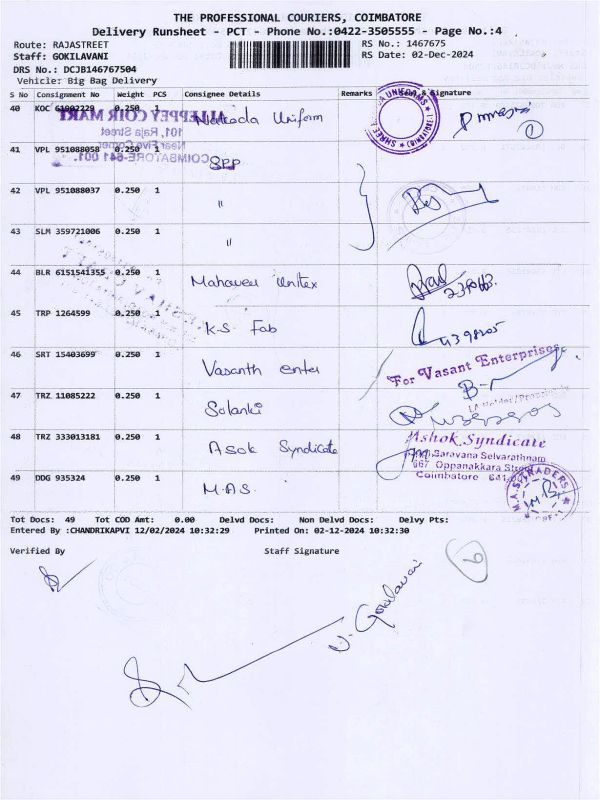 THE PROFESSIONAL COURIERS, COIMBATORE
Delivery Runsheet - PCT - Phone No.:0422-3505555 - Page No.:4
Route: RAJASTREET RS No.: 1467675
Staff: GOKILAVANI RS Date: 02-Dec-2024
DRS No.: DCJB146767504
Vehicle: Big Bag Delivery
S No Consignment No Weight PCS Consignee Details Remarks & Signature
40 KOC 61002229 0.250 1 Nakoda Uniform
ALLEPPEY COIR MART
101, Raja Street
Near Five Corner
COIMBATORE-641 001.
41 VPL 951088058 0.250 1 SPP
42 VPL 951088037 0.250 1 "
43 SLM 359721006 0.250 1 "
44 BLR 6151541355 0.250 1 Mahaveer Unitex
45 TRP 1264599 0.250 1 K.S. Fab
46 SRT 15403699 0.250 1 Vasanth enter
For Vasant Enterprises
47 TRZ 11085222 0.250 1 Solanki
48 TRZ 333013181 0.250 1 Asok Syndicate
Ashok Syndicate
Saravana Selvarathnam
667 Oppanakkara Street
Coimbatore 641
49 DDG 935324 0.250 1 M.A.S.
M.A.S. TRADERS
Tot Docs: 49 Tot COD Amt: 0.00 Delvd Docs: Non Delvd Docs: Delvy Pts:
Entered By :CHANDRIKAPVI 12/02/2024 10:32:29 Printed On: 02-12-2024 10:32:30
Verified By Staff Signature
9
N. Gokilavani